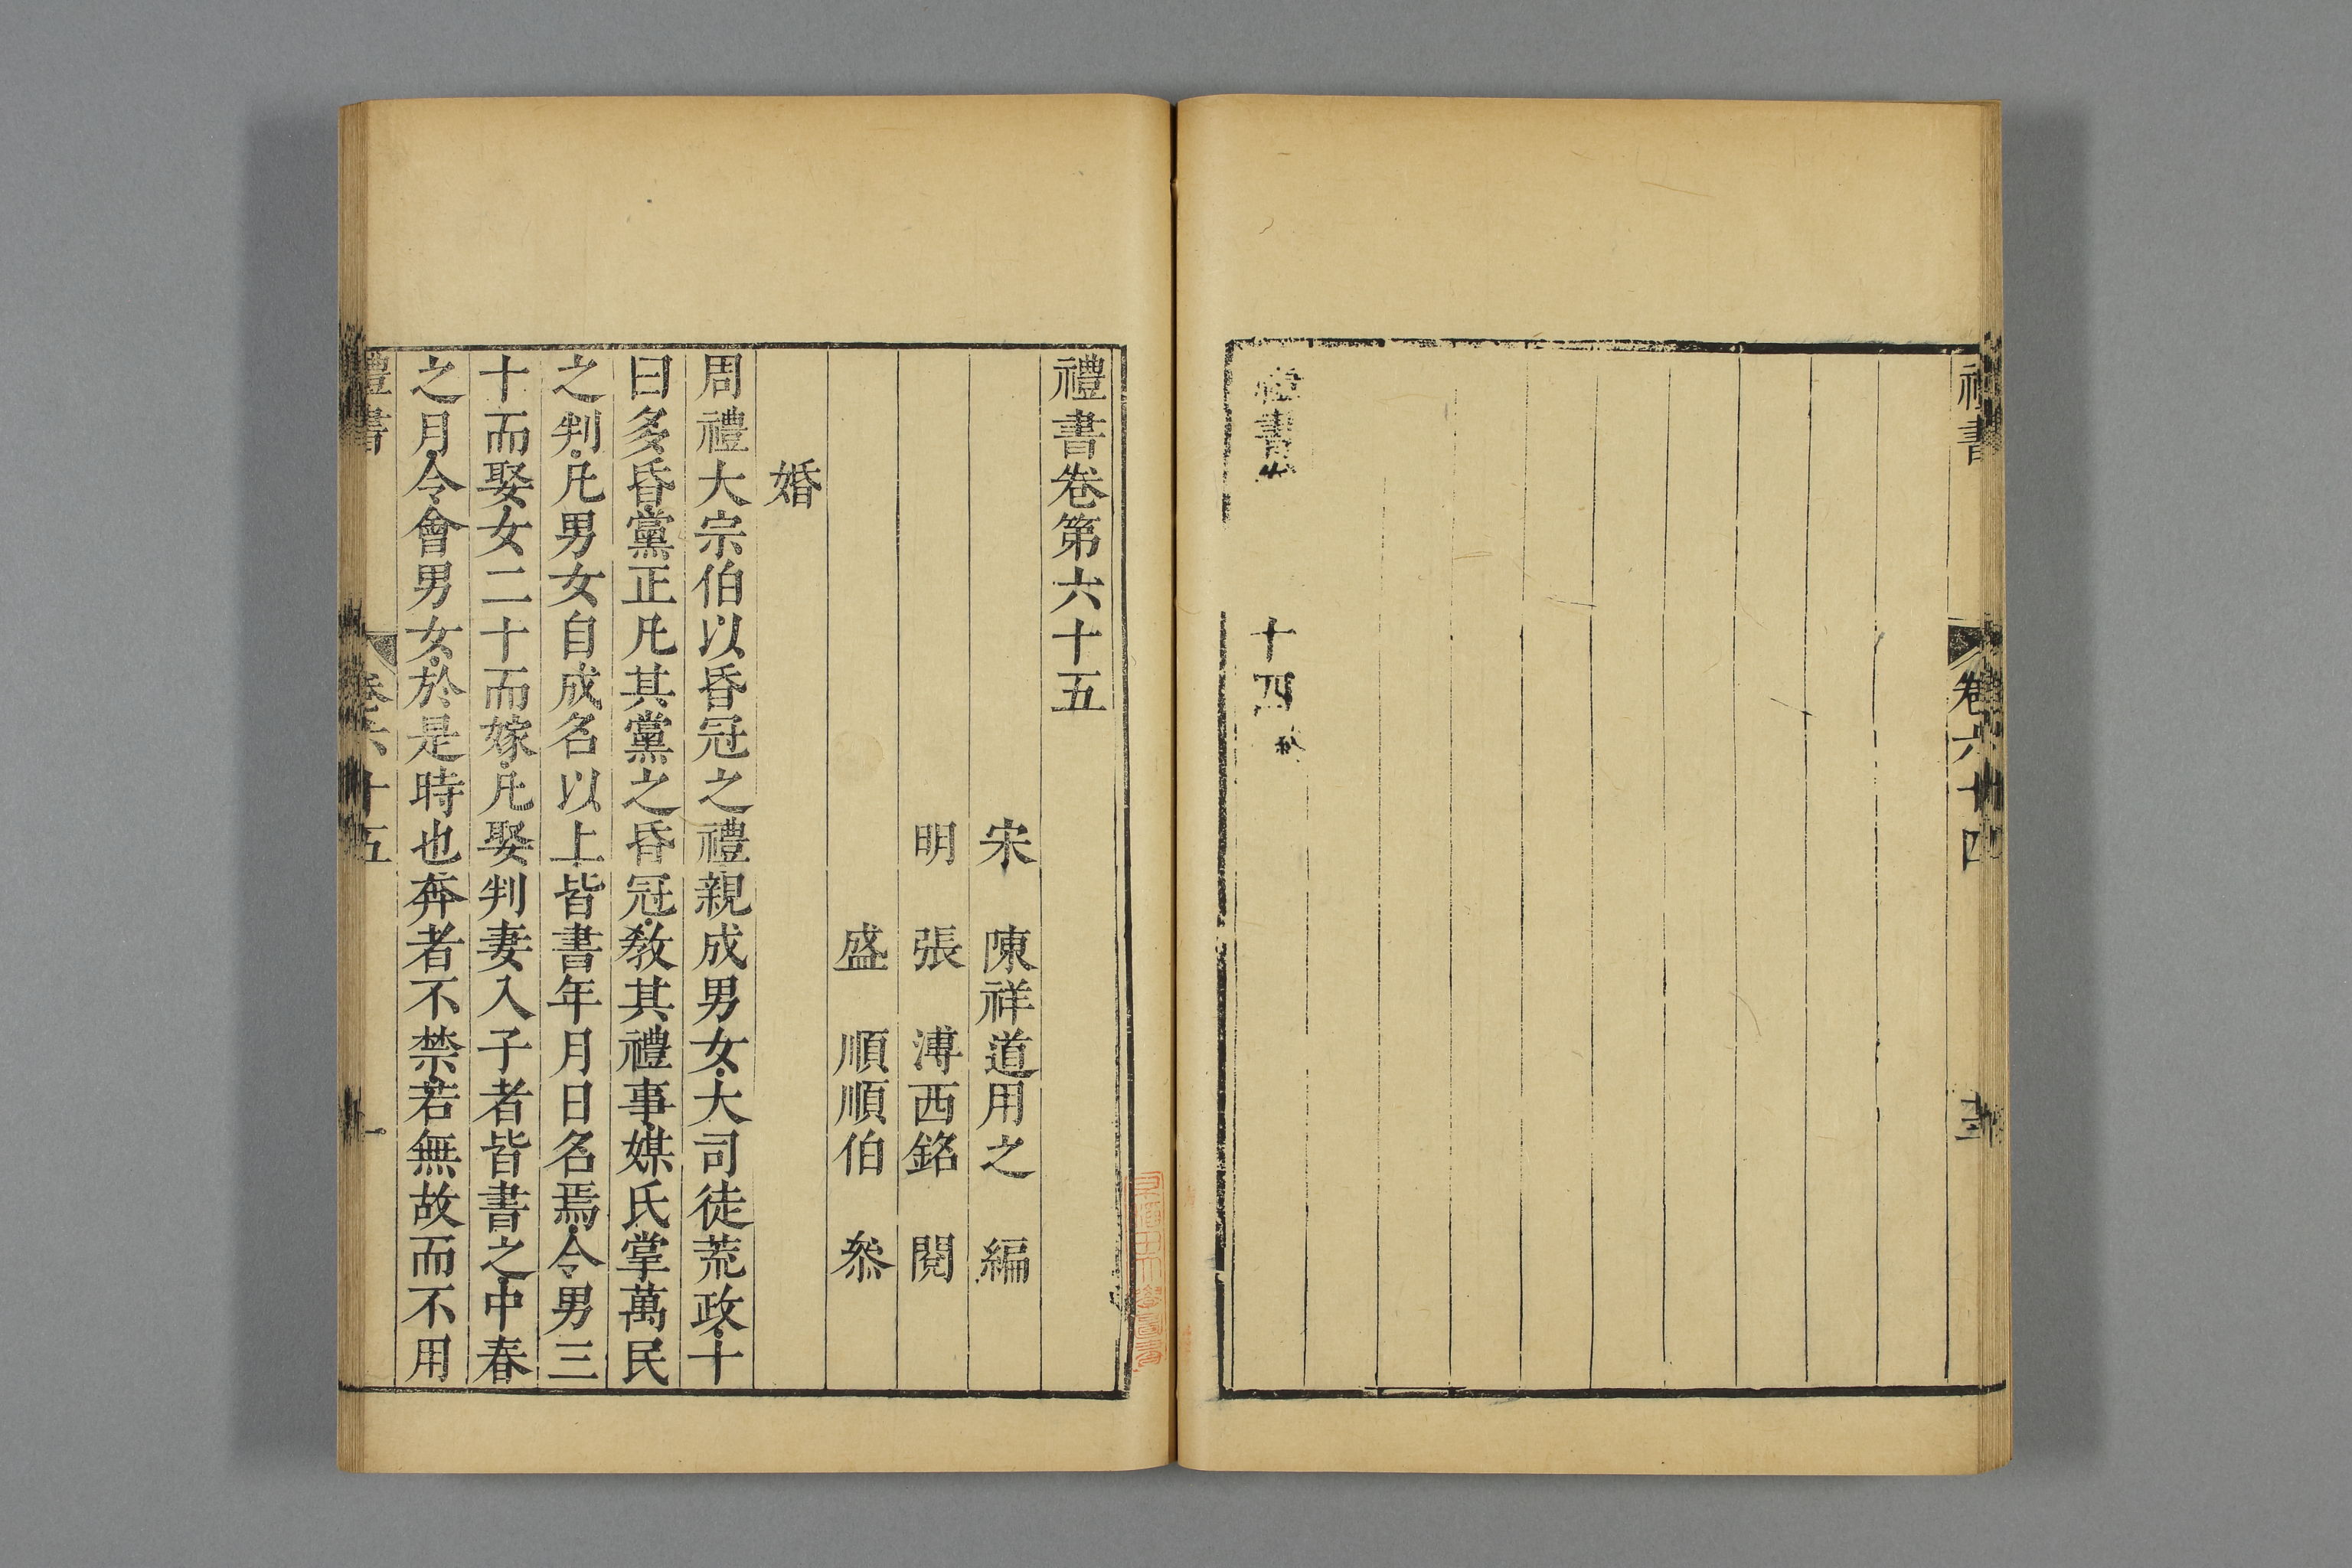 禮書
卷六十四
禮書
十四終
禮書卷第六十五
宋　陳祥道用之　編
明　張　溥西銘　閱
盛　順順伯　叅
婚
周禮大宗伯以昏冠之禮親成男女大司徒荒政十
曰多昏黨正凡其黨之昏冠教其禮事媒氏掌萬民
之判凡男女自成名以上皆書年月日名焉令男三
十而娶女二十而嫁凡娶判妻入子者皆書之中春
之月令會男女於是時也奔者不禁若無故而不用
禮書
卷六十五
一